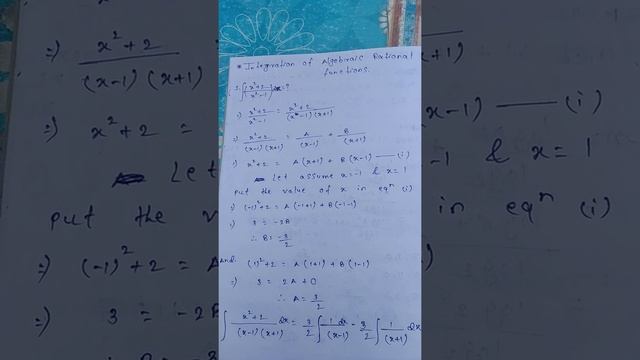 * Integration of Algebraic Rational functions.
1. ∫ (x²+2)/(x²-1) dx = ?
⇒ (x²+2)/(x²-1) = (x²+2)/((x-1)(x+1))
⇒ (x²+2)/((x-1)(x+1)) = A/(x-1) + B/(x+1)
⇒ x²+2 = A(x+1) + B(x-1) —— (i)
Let assume x=-1 & x=1
put the value of x in eqⁿ (i)
⇒ (-1)²+2 = A(-1+1) + B(-1-1)
⇒ 3 = -2B
∴ B = -3/2
And.
(1)²+2 = A(1+1) + B(1-1)
⇒ 3 = 2A + 0
∴ A = 3/2
∫ (x²+2)/((x-1)(x+1)) dx = 3/2 ∫ 1 dx/(x-1) - 3/2 ∫ 1/(x+1) dx